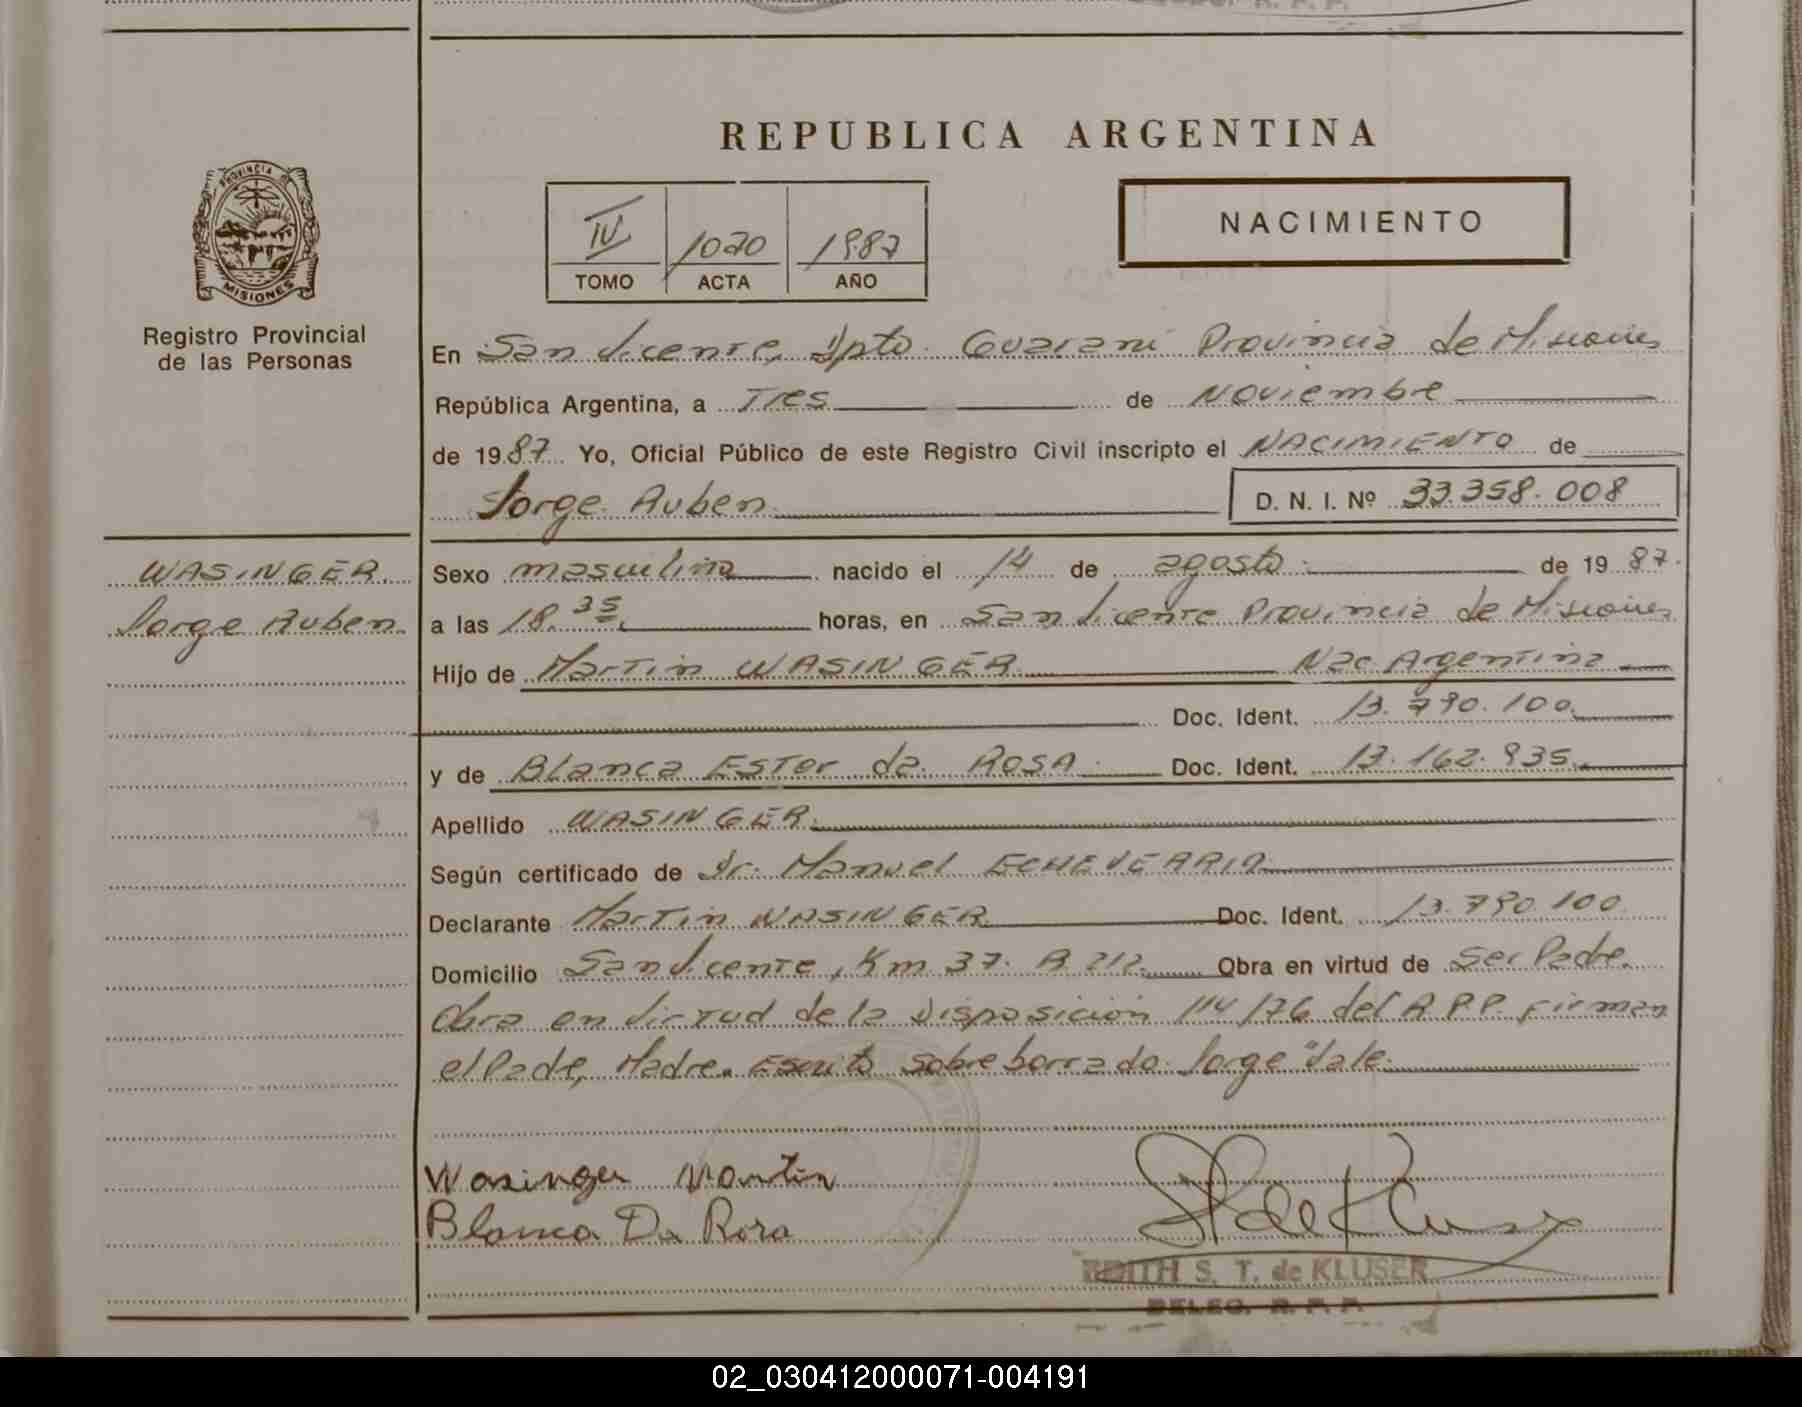 REPUBLICA ARGENTINA
PROVINCIA DE
MISIONES
Registro Provincial
de las Personas
IV 1020 1987
TOMO ACTA AÑO
NACIMIENTO
En San Vicente, Dpto. Guarani Provincia de Misiones
República Argentina, a Tres de Noviembre
de 1987 Yo, Oficial Público de este Registro Civil inscripto el NACIMIENTO de
Jorge Ruben D. N. I. Nº 33.358.008
WASINGER
Jorge Ruben
Sexo masculino nacido el 14 de agosto de 1987
a las 18.35 horas, en San Vicente Provincia de Misiones
Hijo de Martin WASINGER Nac Argentina
Doc. Ident. 13.790.100
y de Blanca Ester da ROSA Doc. Ident. 13.162.935
Apellido WASINGER
Según certificado de Dr. Manuel ECHEVERRIA
Declarante Martin WASINGER Doc. Ident. 13.790.100
Domicilio San Vicente, Km 37. R 212. Obra en virtud de Ser Padre.
Obra en virtud de la Disposición 114/76 del R.P.P. Firman
el Padre, Madre. Escrito sobre borrado Jorge "Vale.
Wasinger Martin
Blanca Da Rosa
EDITH S. T. de KLUSER
DELEG. R. P. P.
02_030412000071-004191